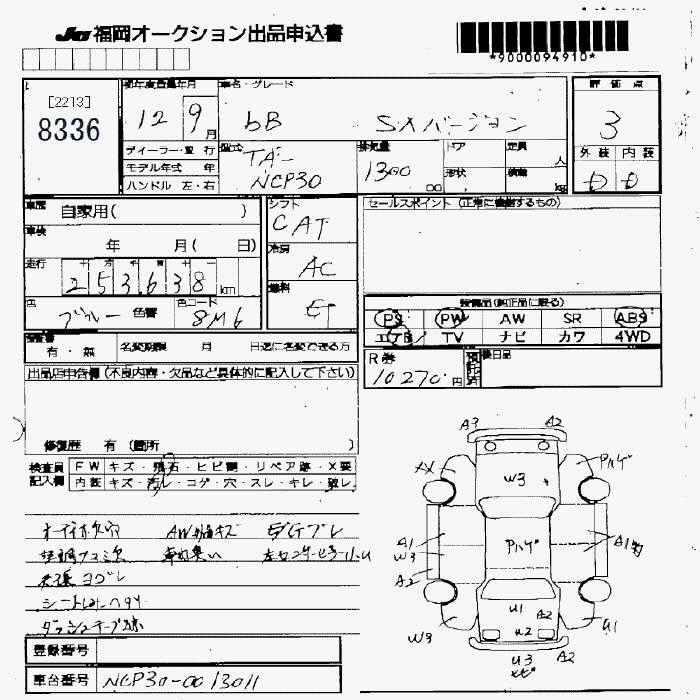 JU福岡オークション出品申込書
*9000094910*
[2213]
8336
初年度登録年月
12 9月
車名・グレード
bB SXバージョン
評価点
3
外装 内装
D D
ディーラー・並行
モデル年式 年
ハンドル 左・右
型式
TA-
NCP30
排気量
1300
cc
ドア
形状
定員
人
積載
kg
車歴
自家用( )
車検
年 月( 日)
走行
253638 km
色
ブルー 色替
色コード
8M6
シフト
CAT
冷房
AC
燃料
セールスポイント (正常に機能するもの)
装備品(純正品に限る)
PS PW AW SR ABS
エアB TV ナビ カワ 4WD
保証書
有・無
名変期限 月 日迄に名変できる方
R券
10270円
預託済
後日品
出品店申告欄(不良内容・欠品など具体的に記入して下さい)
修復歴 有(箇所 )
検査員
記入欄
FW キズ・飛石・ヒビ割・リペア跡・X要
内装 キズ・汚レ・コゲ・穴・スレ・キレ・破レ
オーディオ欠品 AW キズ
天張ヨゴレ
シート ヘタリ
登録番号
車台番号 NCP30-0013011
A3 A2
AX W3 Pハゲ
A1 W3 A2 Pハゲ A1
U1 A2
W3 U2 U1
U3 A2